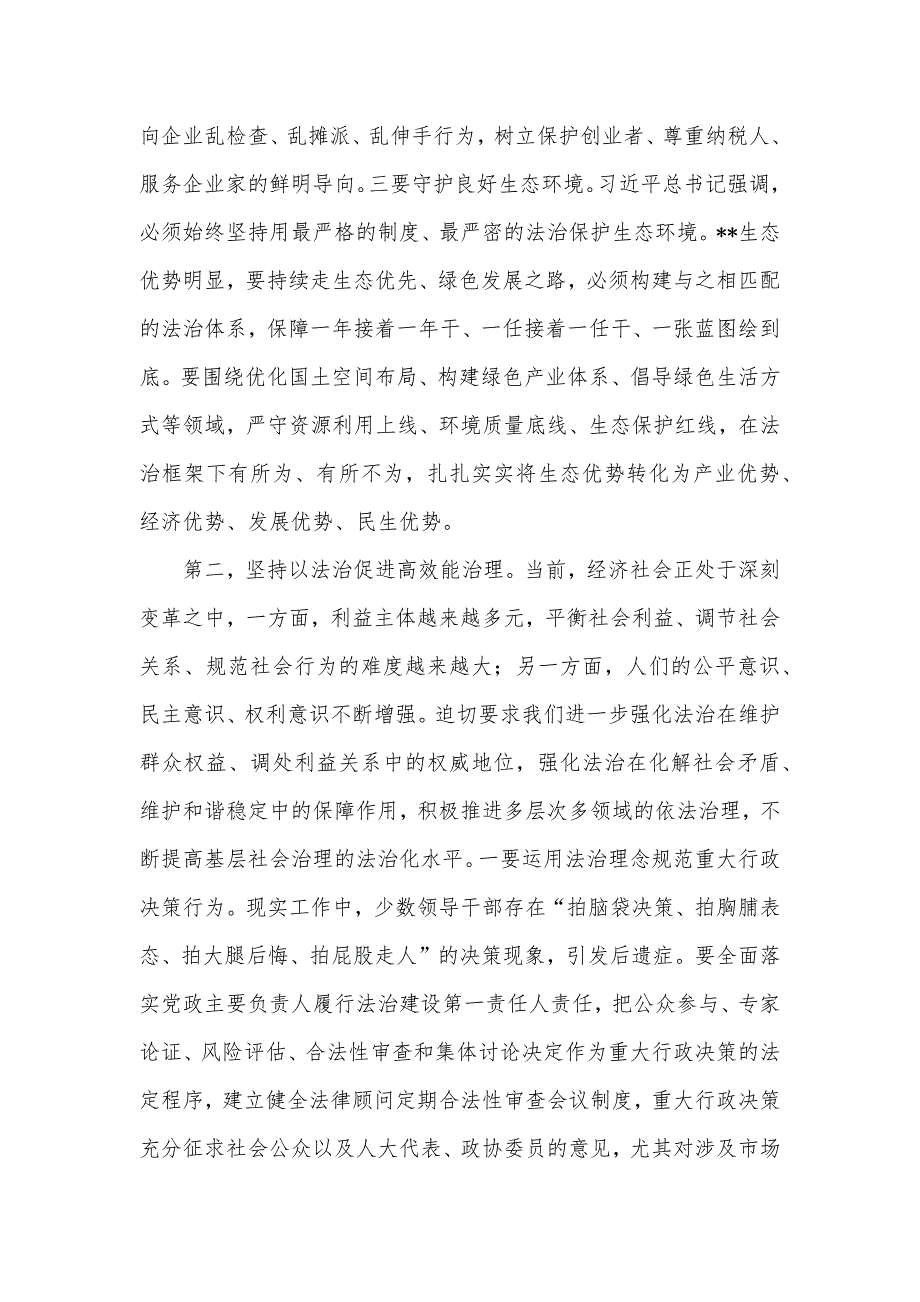 向企业乱检查、乱摊派、乱伸手行为，树立保护创业者、尊重纳税人、
服务企业家的鲜明导向。三要守护良好生态环境。习近平总书记强调，
必须始终坚持用最严格的制度、最严密的法治保护生态环境。**生态
优势明显，要持续走生态优先、绿色发展之路，必须构建与之相匹配
的法治体系，保障一年接着一年干、一任接着一任干、一张蓝图绘到
底。要围绕优化国土空间布局、构建绿色产业体系、倡导绿色生活方
式等领域，严守资源利用上线、环境质量底线、生态保护红线，在法
治框架下有所为、有所不为，扎扎实实将生态优势转化为产业优势、
经济优势、发展优势、民生优势。
第二，坚持以法治促进高效能治理。当前，经济社会正处于深刻
变革之中，一方面，利益主体越来越多元，平衡社会利益、调节社会
关系、规范社会行为的难度越来越大；另一方面，人们的公平意识、
民主意识、权利意识不断增强。迫切要求我们进一步强化法治在维护
群众权益、调处利益关系中的权威地位，强化法治在化解社会矛盾、
维护和谐稳定中的保障作用，积极推进多层次多领域的依法治理，不
断提高基层社会治理的法治化水平。一要运用法治理念规范重大行政
决策行为。现实工作中，少数领导干部存在“拍脑袋决策、拍胸脯表
态、拍大腿后悔、拍屁股走人”的决策现象，引发后遗症。要全面落
实党政主要负责人履行法治建设第一责任人责任，把公众参与、专家
论证、风险评估、合法性审查和集体讨论决定作为重大行政决策的法
定程序，建立健全法律顾问定期合法性审查会议制度，重大行政决策
充分征求社会公众以及人大代表、政协委员的意见，尤其对涉及市场